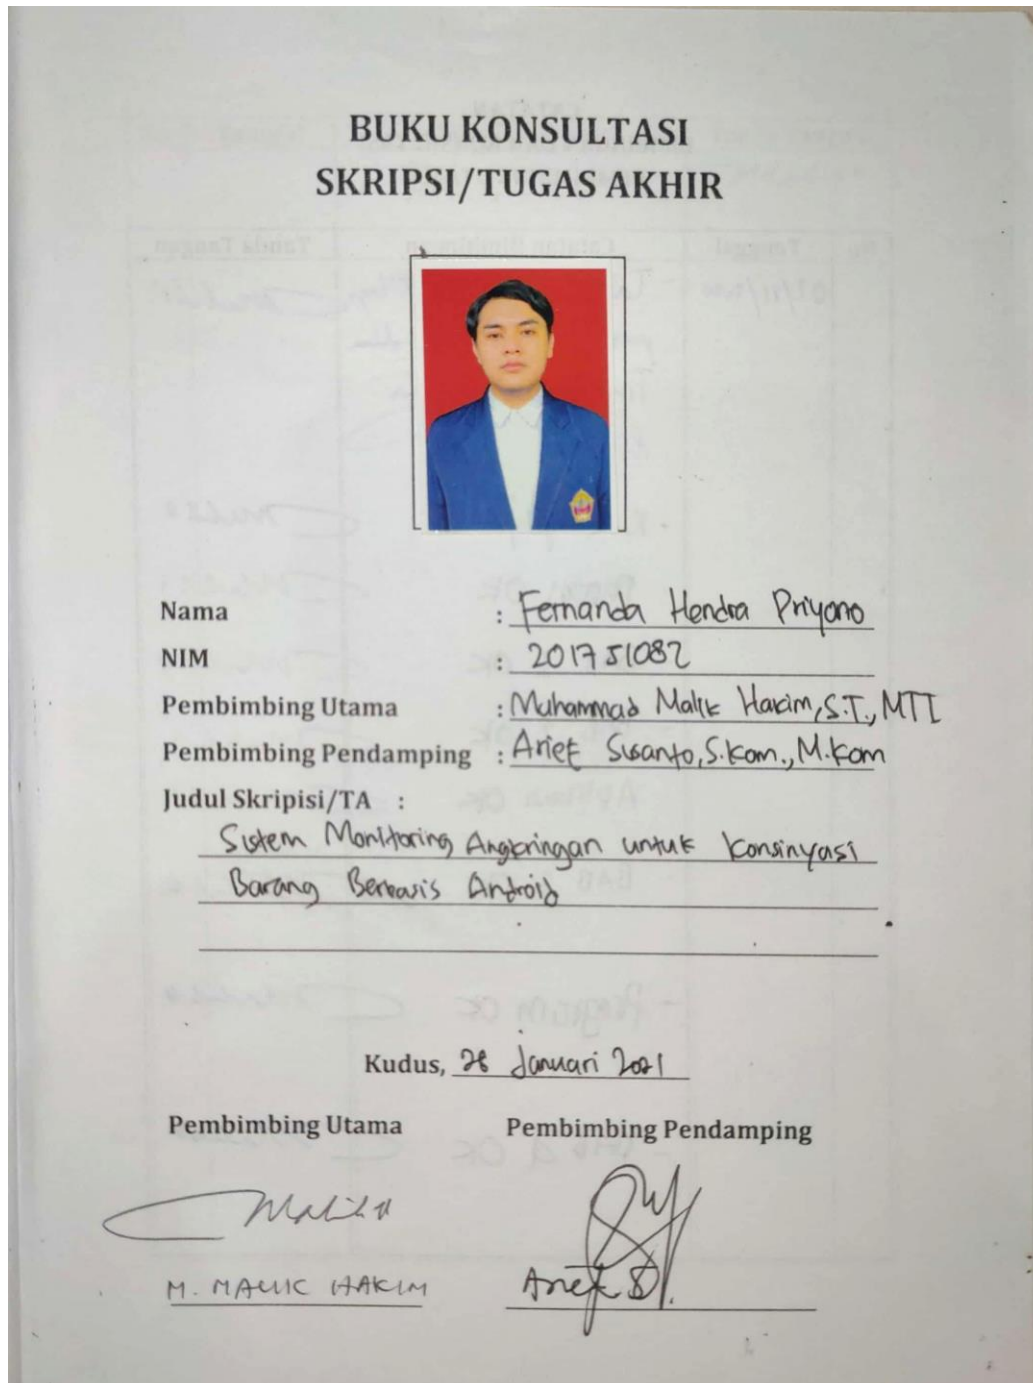 BUKU KONSULTASI
SKRIPSI/TUGAS AKHIR
Nama : Fernanda Hendra Priyono
NIM : 201751082
Pembimbing Utama : Muhammad Malik Hakim, S.T., MTI
Pembimbing Pendamping : Arief Susanto, S.Kom., M.Kom
Judul Skripisi/TA :
Sistem Monitoring Angkringan untuk Konsinyasi
Barang Berbasis Android
Kudus, 28 Januari 2021
Pembimbing Utama Pembimbing Pendamping
M. MALIK HAKIM Arief S